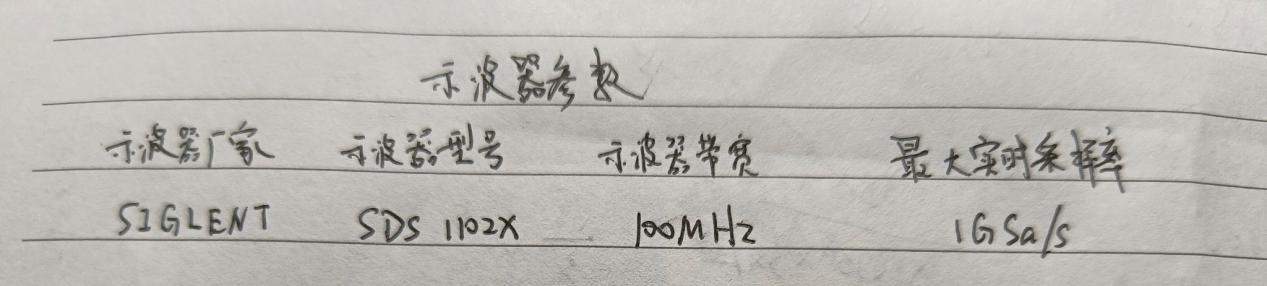 示波器参数
示波器厂家 示波器型号 示波器带宽 最大实时采样率
SIGLENT SDS 1102X 100MHz 1GSa/s